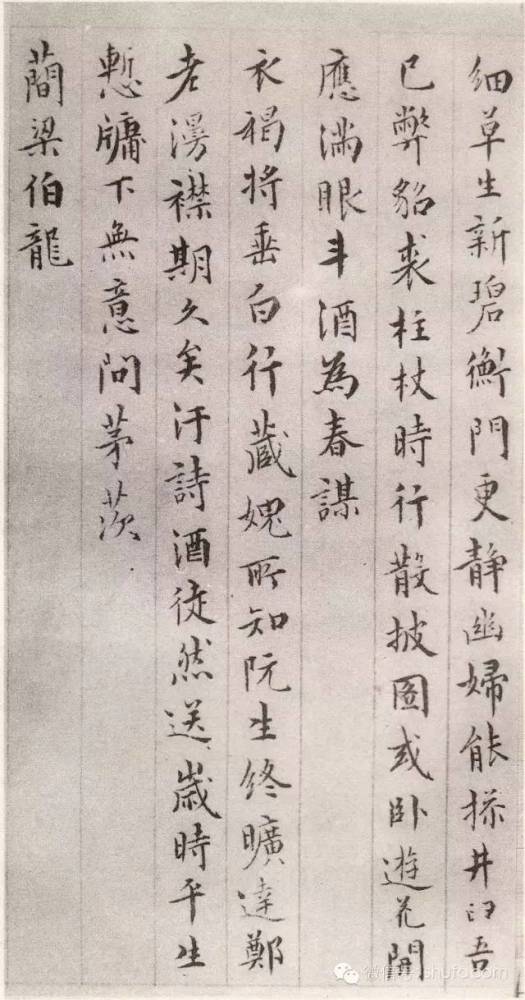 細草生新碧衡門更静幽婦能操井臼吾
已弊貂裘柱杖時行散披圖或卧遊花開
應滿眼斗酒為春謀
衣褐将垂白行蔵媿所知阮生終曠達鄭
老漫襟期久矣汙詩酒徒然送歲時平生
慙牖下無意問茅茨
蕳梁伯龍
微信号: shufo.com